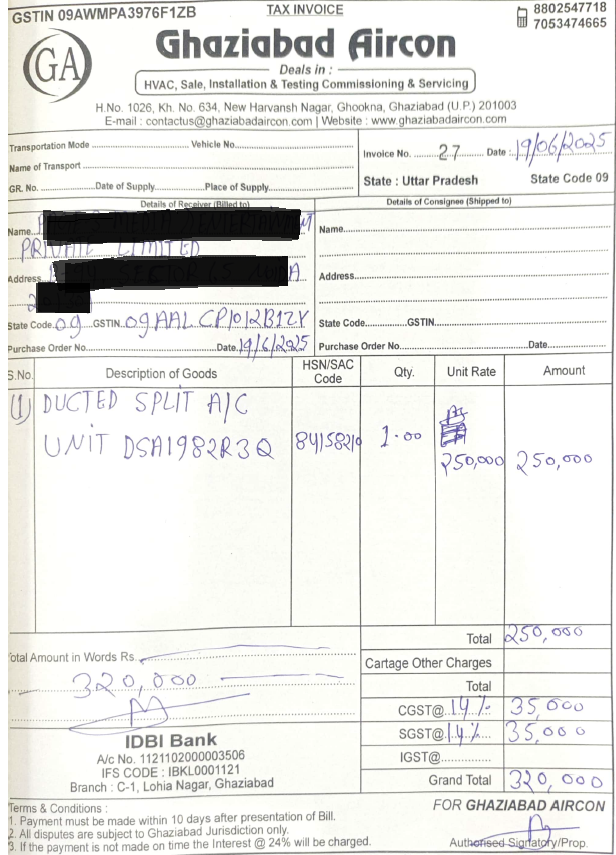 GSTIN 09AWMPA3976F1ZB
TAX INVOICE
8802547718
7053474665
GA
Ghaziabad Aircon
Deals in :
HVAC, Sale, Installation & Testing Commissioning & Servicing
H.No. 1026, Kh. No. 634, New Harvansh Nagar, Ghookna, Ghaziabad (U.P.) 201003
E-mail : contactus@ghaziabadaircon.com | Website : www.ghaziabadaircon.com
Transportation Mode Vehicle No.
Name of Transport
GR. No. Date of Supply Place of Supply
Invoice No. 27 Date : 19/06/2025
State : Uttar Pradesh State Code 09
Details of Receiver (Billed to)
Name
PRIVATE LIMITED
Address
State Code 09 GSTIN 09AALCP1012B1ZY
Purchase Order No. Date 19/6/2025
Details of Consignee (Shipped to)
Name
Address
State Code GSTIN
Purchase Order No. Date
S.No. Description of Goods HSN/SAC Code Qty. Unit Rate Amount
(1) DUCTED SPLIT A/C
UNIT DSA1982R3Q 84158210 1.00 250,000 250,000
Total 250,000
Total Amount in Words Rs.
320,000
Cartage Other Charges
Total
CGST@ 14% 35,000
SGST@ 14% 35,000
IGST@
Grand Total 320,000
IDBI Bank
A/c No. 1121102000003506
IFS CODE : IBKL0001121
Branch : C-1, Lohia Nagar, Ghaziabad
Terms & Conditions :
1. Payment must be made within 10 days after presentation of Bill.
2. All disputes are subject to Ghaziabad Jurisdiction only.
3. If the payment is not made on time the Interest @ 24% will be charged.
FOR GHAZIABAD AIRCON
Authorised Signatory/Prop.